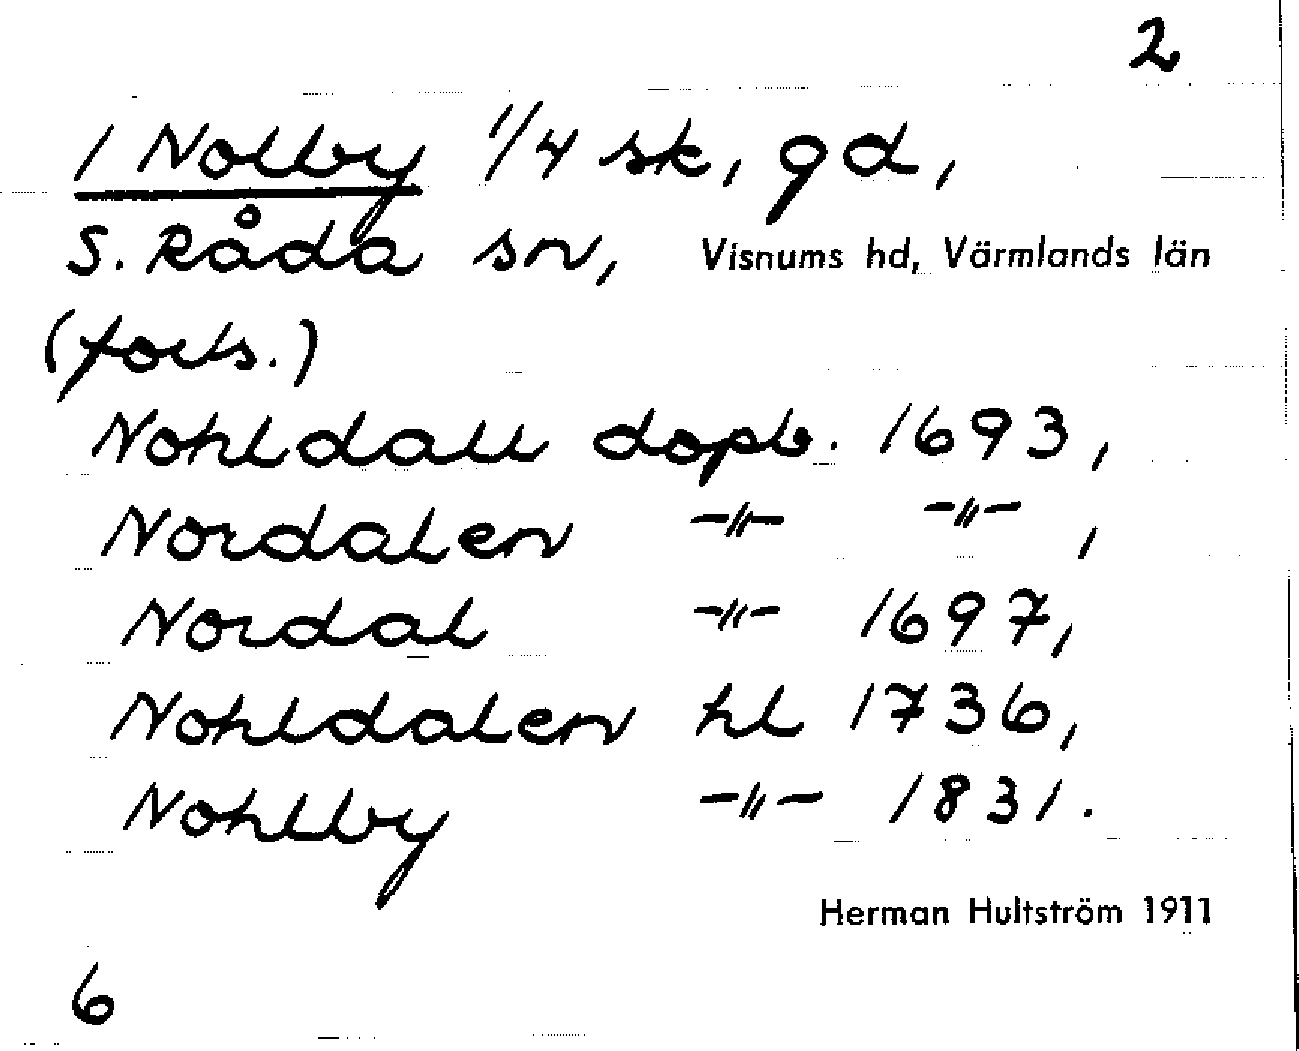 2
1 Nolby 1/4 sk, gd,
S. Råda sn, Visnums hd, Värmlands län
(forts.)
Nohldall dopb. 1693,
Nordalen -"- -"-,
Nordal -"- 1697,
Nohldalen hl 1736,
Nohlby -"- 1831.
Herman Hultström 1911
6